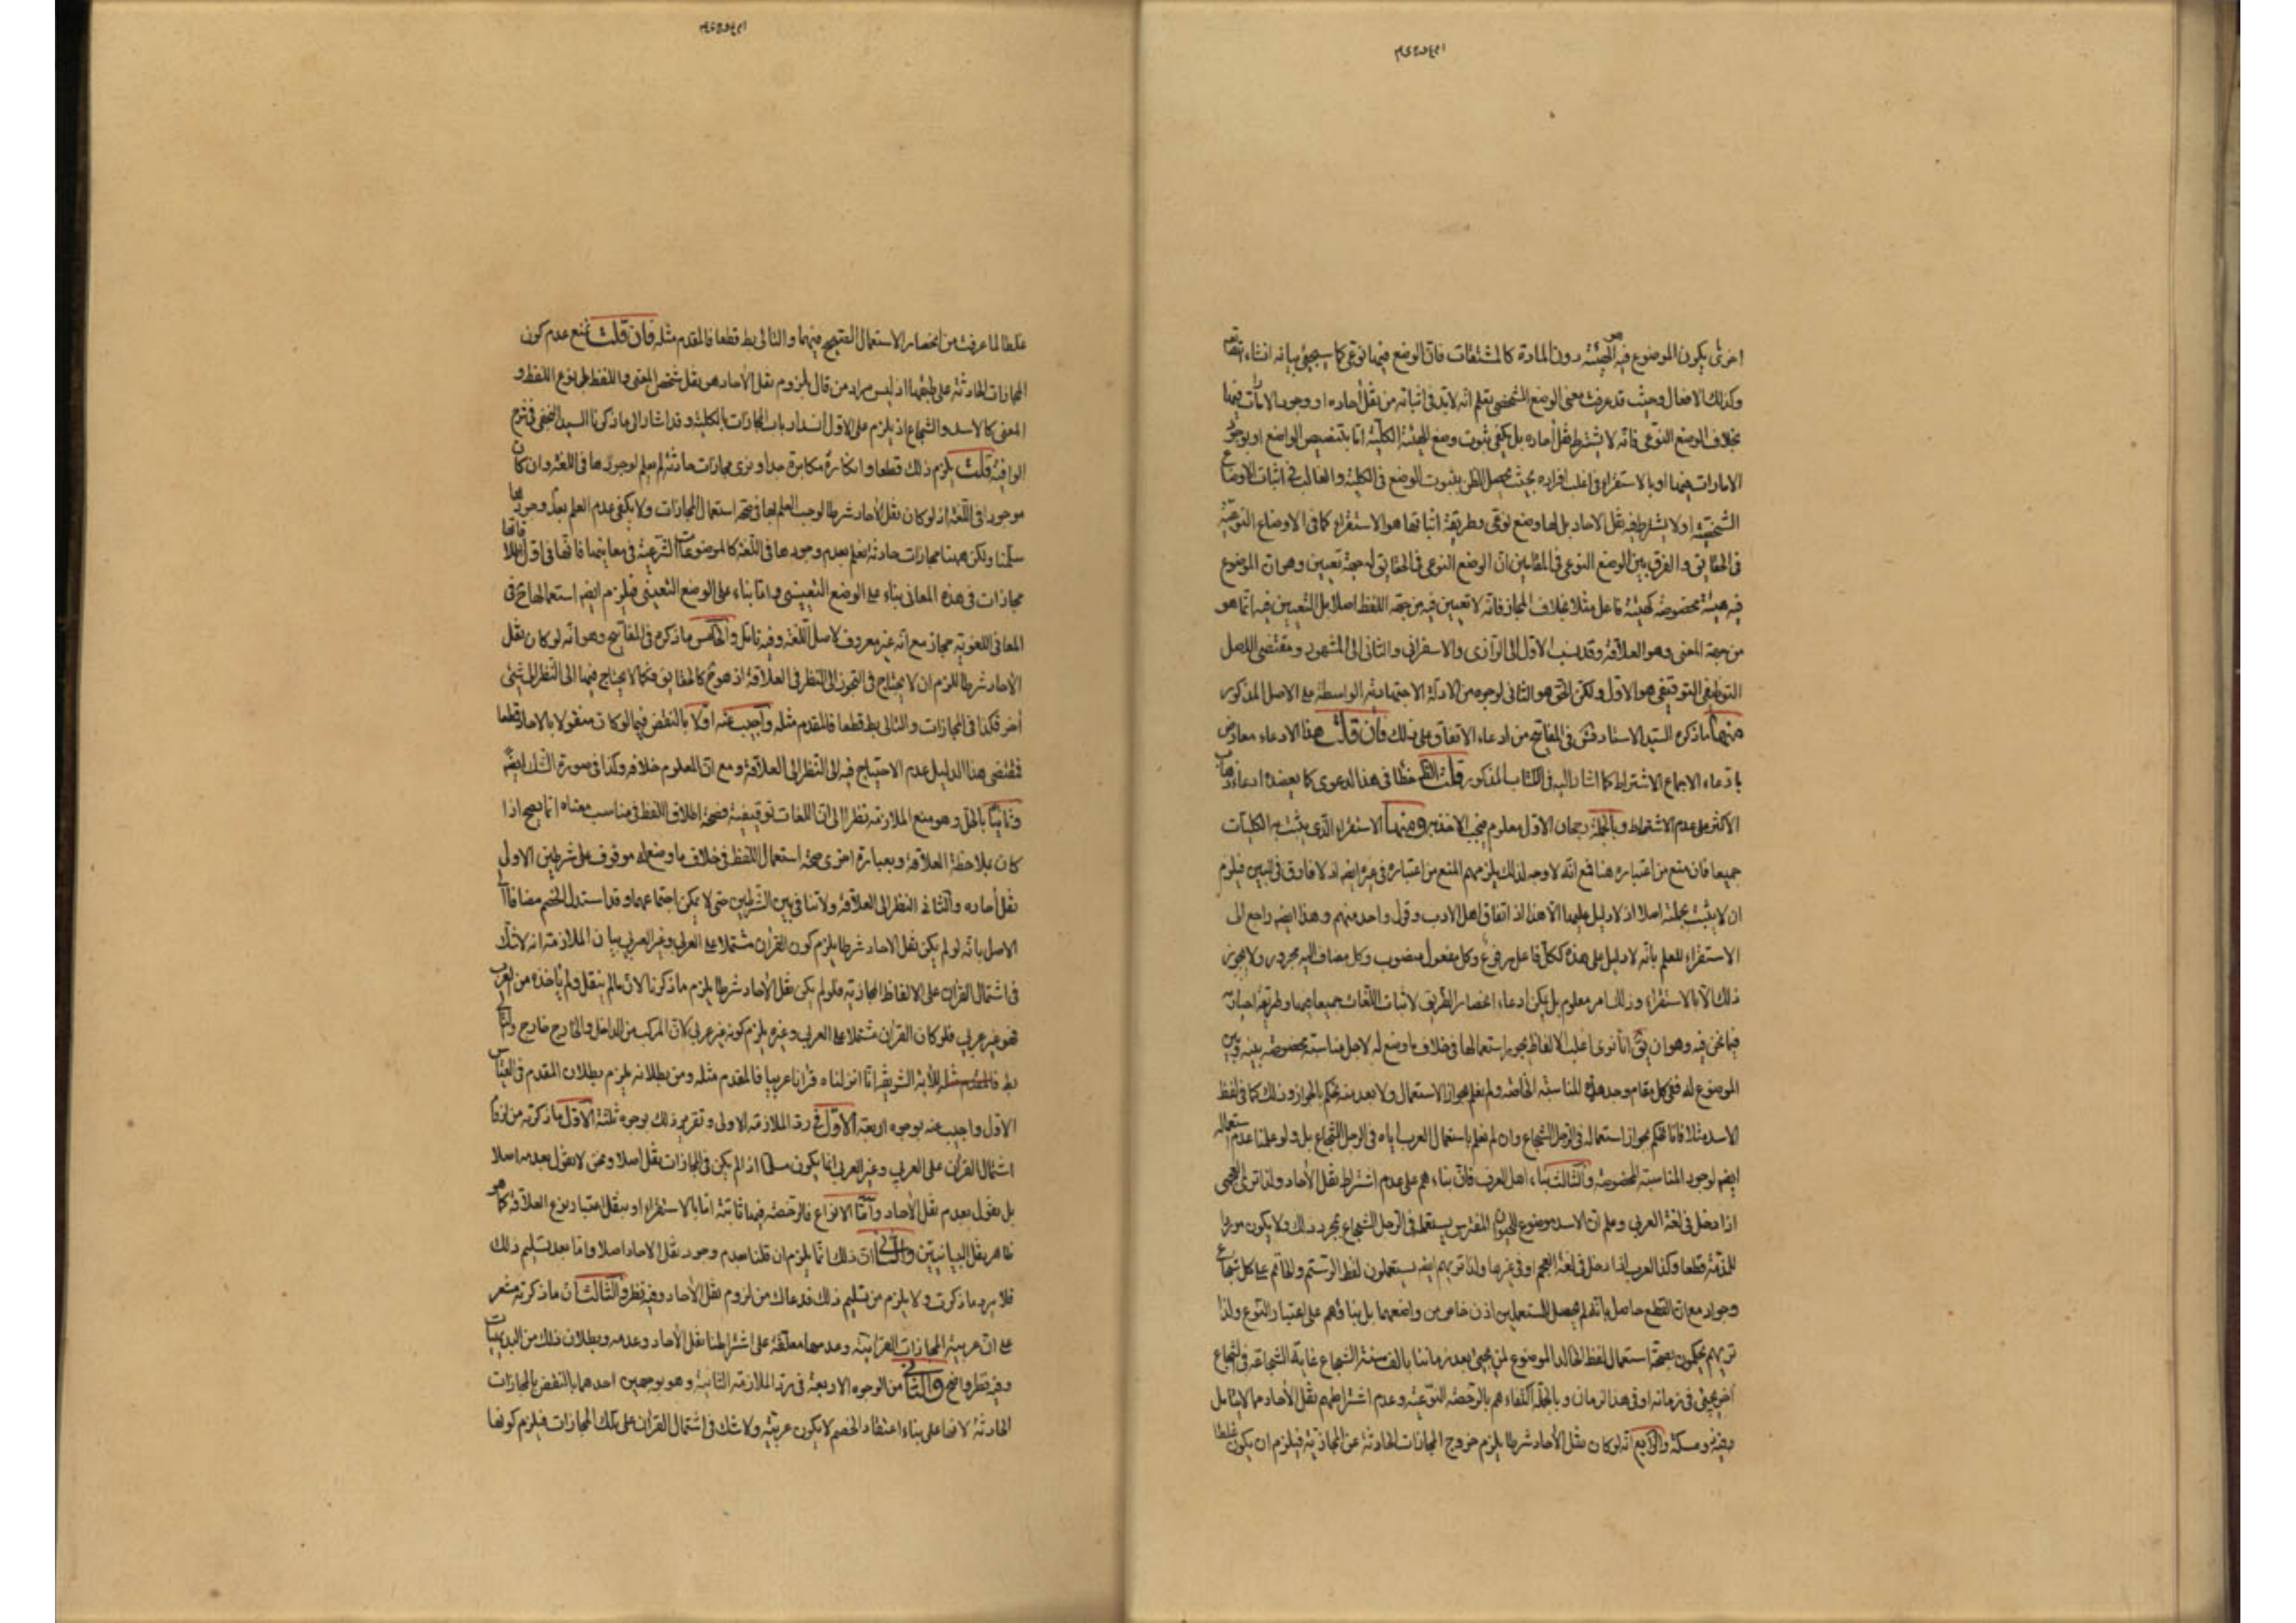 اخرى يكون الموضوع فيه هو الهيئة دون المادة كالمشتقات فان الوضع فيها نوعى كما سيجيئ بيانه انشاء الله تعالى
وكذلك الافعال وحيث قد عرفت معنى الوضع الشخصى تعلم انه لا بد فى اثباته من نقل آحاده او وجود الامارات فيها
بخلاف الوضع النوعى فانه لا يشترط نقل آحاده بل يكفى ثبوت وضع الهيئة الكلية اما بتنصيص الواضع او بوجود
الامارات فيها او بالاستقراء فى اغلب افراده بحيث يحصل الظن بثبوت الوضع فى الكلية والغالب فى اثبات الاوضاع
الشخصية او لا يشترط فيه نقل الاحاد بل لها وضع نوعى وطريقة اثباتها هو الاستقراء كما فى الاوضاع النوعية
فى الحقايق والفرق بين الوضع النوعى فى المقامين ان الوضع النوعى فى الحقايق له جهة تعيين وهو ان الموضوع
فيه هيئة مخصوصة كهيئة فاعل مثلا بخلاف المجاز فانه لا تعيين فيه من جهة اللفظ اصلا بل التعيين فيه انما هو
من جهة المعنى وهو العلاقة وقد نسب الاول الى الرازى والاسفرانى والثانى الى المشهور ومقتضى الاصل
التوظيفى التوقيفى هو الاول ولكن الحق هو الثانى لوجوه من الادلة الاجتهادية الواسطة مع الاصل المذكور
منها ما ذكره السيد الاستاد فى المفاتيح من ادعاء الاتفاق على ذلك فان قلت هذا الادعاء معارض
بادعاء الاجماع الاشتراط كما اشار اليه فى الكتاب المذكور قلت خطا فى هذا الدعوى كما يعضده ادعاء ذهاب
الاكثر على عدم الاشتراط وبالجملة رجحان الاول معلوم فيجب الاخذ به ومنها الاستقراء الذى يثبت به الكليات
جميعا فان منع من اعتباره هنا فمع انه لا وجه لذلك يلزمهم المنع من اعتباره فى غيره ايضا اذ لا فارق فى البين فيلزم
ان لا يثبت بجملة اصلا اذ لا دليل عليها الا هذا اذ اتفاق اهل الادب وقول واحد منهم وهذا ايضا راجع الى
الاستقراء للعلم بانه لا دليل على هذه ككل فاعل مرفوع وكل مفعول منصوب وكل مضاف اليه مجرور ولا يجوز
ذلك الا بالاستقراء وذلك امر معلوم بل يمكن ادعاء انحصار الطريق لاثبات اللغات جميعا فيها وطريقة اجرائه
فيما نحن فيه وهو ان يق انا نرى اغلب الالفاظ يجوز استعمالها فى خلاف ما وضع له لاجل مناسبة مخصوصة بينه وبين
الموضوع له ففى كل مقام وجد هذه المناسبة الخاصة ولم نعلم بجواز الاستعمال ولا بعدمه نحكم بالجواز وذلك كما فى لفظ
الاسد مثلا فانا نحكم بجواز استعماله فى الرجل الشجاع وان لم نعلم باستعمال العرب اياه فى الرجل الشجاع بل ولو علمنا عدم استعماله
ايضا لوجود المناسبة المخصوصة والثالث بناء اهل العرف فان بناءهم على عدم اشتراط نقل الآحاد ولذا ترى العجمى
اذا دخل فى لغة العربى وعلم ان الاسد موضوع للحيوان المفترس يستعمله فى الرجل الشجاع بمجرد ذلك ولا يكون موردا
للمذمة قطعا وكذا العرب اذا دخل فى لغة العجم او فى غيرها ولذا تريهم ايضا يستعملون لفظ الرستم والحاتم على كل شجاع
وجواد مع ان القطع حاصل بانه لم يحصل للمستعملين اذن خاص من واضعهما بل بناؤهم على اعتبار النوع ولذا
تريهم يحكمون بصحة استعمال لفظ الخالد الموضوع لمن يجيئ بعد زماننا بالف سنة الشجاع غاية الشجاعة فى شجاع
آخر يجيئ فى زمانه او فى هذا الزمان وبالجملة اكتفاءهم بالرخصة النوعية وعدم اشتراطهم نقل الآحاد مما لا يتامل
فيه ذو مسكة والرابع انه لو كان نقل الآحاد شرطا يلزم خروج المجازات الحادثة عن المجازية فيلزم ان يكون غلطا
غلطا لما عرفت من انحصار الاستعمال الصحيح فيهما والتالى بط قطعا فالمقدم مثله فان قلت نمنع عدم كون
المجازات الحادثة على طبقها اذ ليس مراد من قال بلزوم نقل الآحاد هو نقل شخص المعنى واللفظ بل نوع اللفظ و
المعنى كالاسد والشجاع اذ يلزم على الاول انسداد باب المجازات بالكلية وقد اشار الى ما ذكرنا السيد فى شرح
الوافية قلت يلزم ذلك قطعا وانكاره مكابرة جدا ونرى مجازات حادثة لم يعلم لوجودها فى اللغة وان كان
موجودا فى اللغة اذ لو كان نقل الآحاد شرطا لوجب العلم بها فى صحة استعمال المجازات ولا يكفى عدم العلم بعدم وجودها
سلمنا ولكن هيهنا مجازات حادثة نعلم بعدم وجودها فى اللغة كالموضوعات الشرعية فى معانيها فانها فى اول الامر
مجازات فى هذه المعانى بناء على الوضع التعينى واما بناء على الوضع التعيينى فيلزم ايضا استعمالها فى
المعانى اللغوية مجاز مع انه غير معروف لاصل اللغة وفيه تامل والخامس ما ذكره فى المفاتيح وهو انه لو كان نقل
الآحاد شرطا للزم ان لا يحتاج فى التجوز الى النظر فى العلاقة اذ هو ح كالحقايق فكما لا يحتاج فيها الى النظر الى شيئ
آخر فكذا فى المجازات والتالى بط قطعا فالمقدم مثله واجيب عنه اولا بالنقض فيما لو كان منقولا بالآحاد قطعا
فمقتضى هذا الدليل عدم الاحتياج فيه الى النظر الى العلاقة ومع ان المعلوم خلافه وكذا فى صورة الشك ايضا
وثانيا بالحل وهو منع الملازمة نظرا الى ان اللغات توقيفية فصحة اطلاق اللفظ فى مناسب معناه انما يصح اذا
كان بملاحظة العلاقة وبعبارة اخرى صحة استعمال اللفظ فى خلاف ما وضع له موقوف على شرطين الاول
نقل آحاده والثانى النظر الى العلاقة ولا تنافى بين الشرطين حتى لا يمكن اجتماعهما وقد استدل الخصم مضافا الى
الاصل بانه لو لم يكن نقل الآحاد شرطا يلزم كون القرآن مشتملا على العربى وغير العربى بيان الملازمة انه لا شك
فى اشتمال القرآن على الالفاظ المجازية فلو لم يكن نقل الآحاد شرطا يلزم ما ذكرنا لان ما لم ينقل ولم ياخذه من العرب
فهو غير عربى فلو كان القرآن مشتملا على العربى وغيره يلزم كونه غير عربى لان المركب من الداخل والخارج خارج والتالى
بط للآية الشريفة انا انزلناه قرآنا عربيا فالمقدم مثله ومن بطلانه يلزم بطلان المقدم فى القياس
الاول واجيب عنه بوجوه اربعة الاول فى رد الملازمة الاولى وتقرير ذلك بوجوه ثلثة الاول ما ذكرته من لزوم
اشتمال القرآن على العربى وغير العربى انما يكون مسلما اذا لم يكن فى المجازات نقل اصلا ونحن لا نقول بعدمه اصلا
بل نقول بعدم نقل الآحاد واما الانواع فالرخصة فيها ثابتة اما بالاستقراء او بنقل اعتبار نوع العلاقة كما هو
ظاهر نقل البيانيين والثانى ان ذلك انما يلزم ان قلنا بعدم وجود نقل الآحاد اصلا واما بعد تسليم ذلك
فلا يرد ما ذكرت ولا يلزم من تسليم ذلك فدعاك من لزوم نقل الآحاد وفيه نظر والثالث ان ما ذكرته مشعر
على ان عربية المجازات القرآنية وعدمها معلقة على اشتراطنا نقل الآحاد وعدمه وبطلان ذلك من البديهيات
وفيه نظر واضح والثانى من الوجوه الاربعة فى رد الملازمة الثانية وهو بوجهين احدهما بالنقض بالمجازات
الحادثة لانها على بناء اعتقاد الخصم لا يكون عربية ولا شك فى اشتمال القرآن على تلك المجازات فيلزم كونها